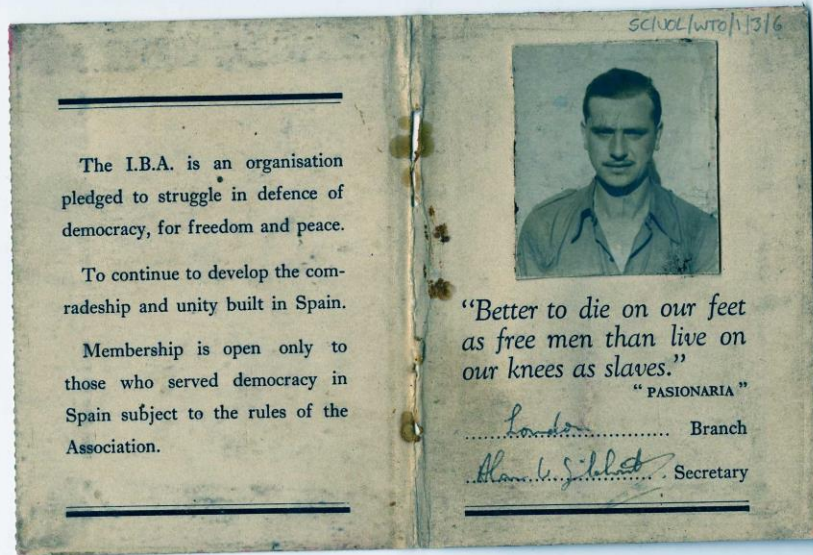 SC/VOL/WTO/1/3/6
The I.B.A. is an organisation
pledged to struggle in defence of
democracy, for freedom and peace.
To continue to develop the com-
radeship and unity built in Spain.
Membership is open only to
those who served democracy in
Spain subject to the rules of the
Association.
“Better to die on our feet
as free men than live on
our knees as slaves.”
“ PASIONARIA ”
London Branch
Secretary